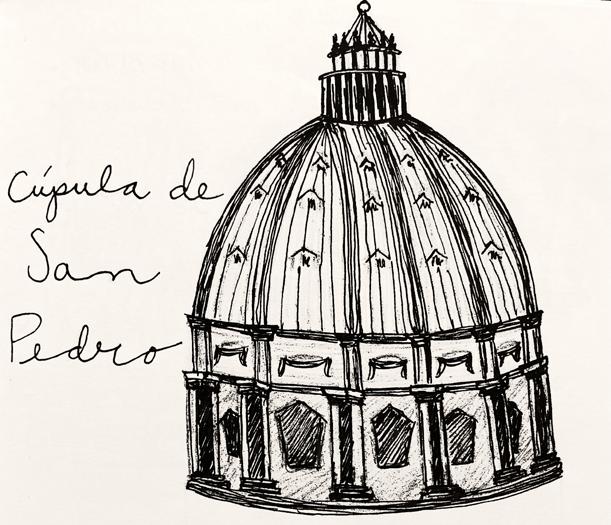 Cúpula de
San
Pedro